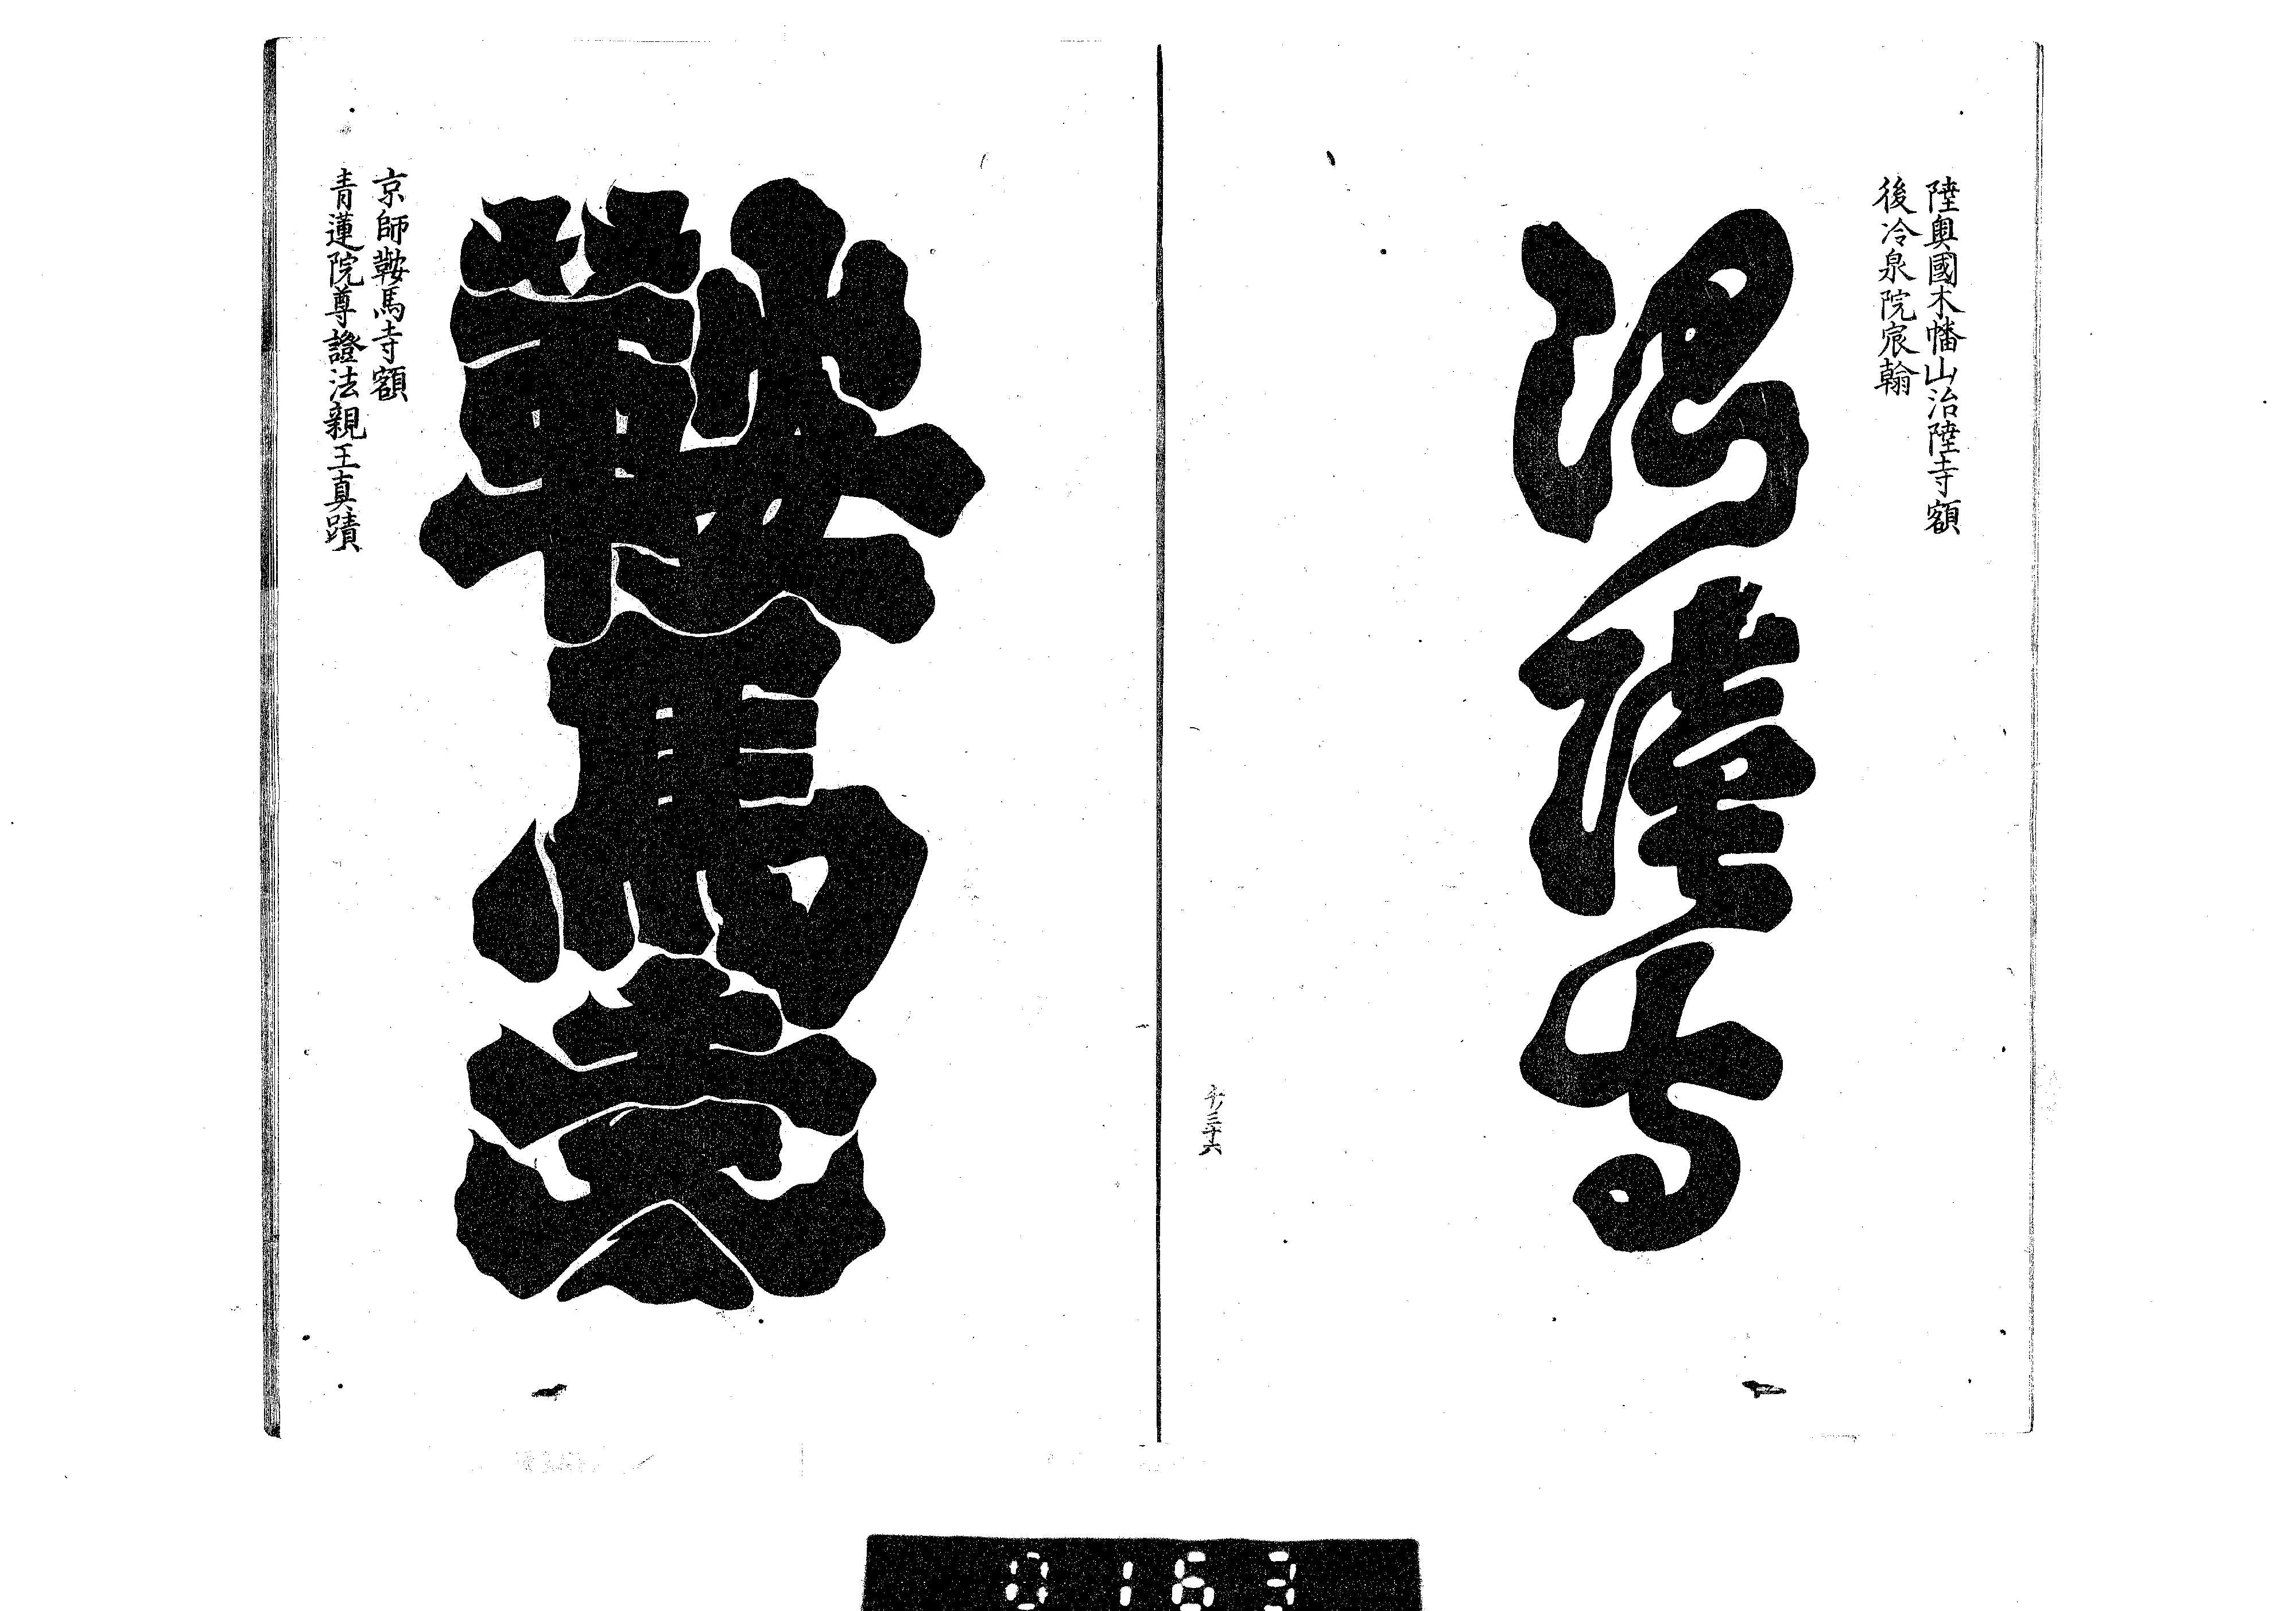 陸奥國木幡山治陸寺額
後冷泉院宸翰
治陸寺
十ノ三十六
鞍馬寺
京師鞍馬寺額
青蓮院尊證法親王真蹟
0163